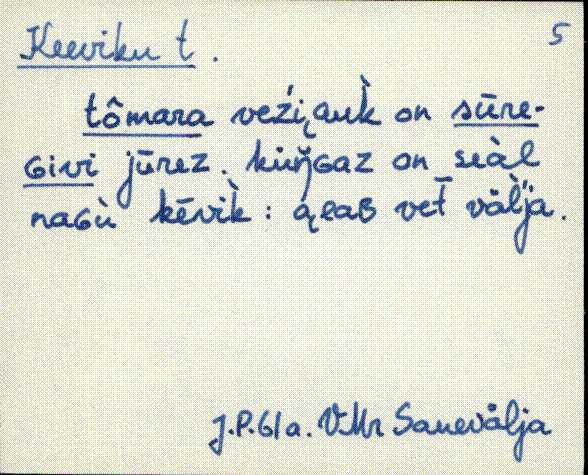 Keeviku t.
5
tômara veźi̮auk̀ on sūre-
Givi jūrez. kuŋ̆Gaz on seàl
naGù kēvik̀: a̮eaB vet̄ väl'ja.
J.P. 61a. VMr Sauevälja